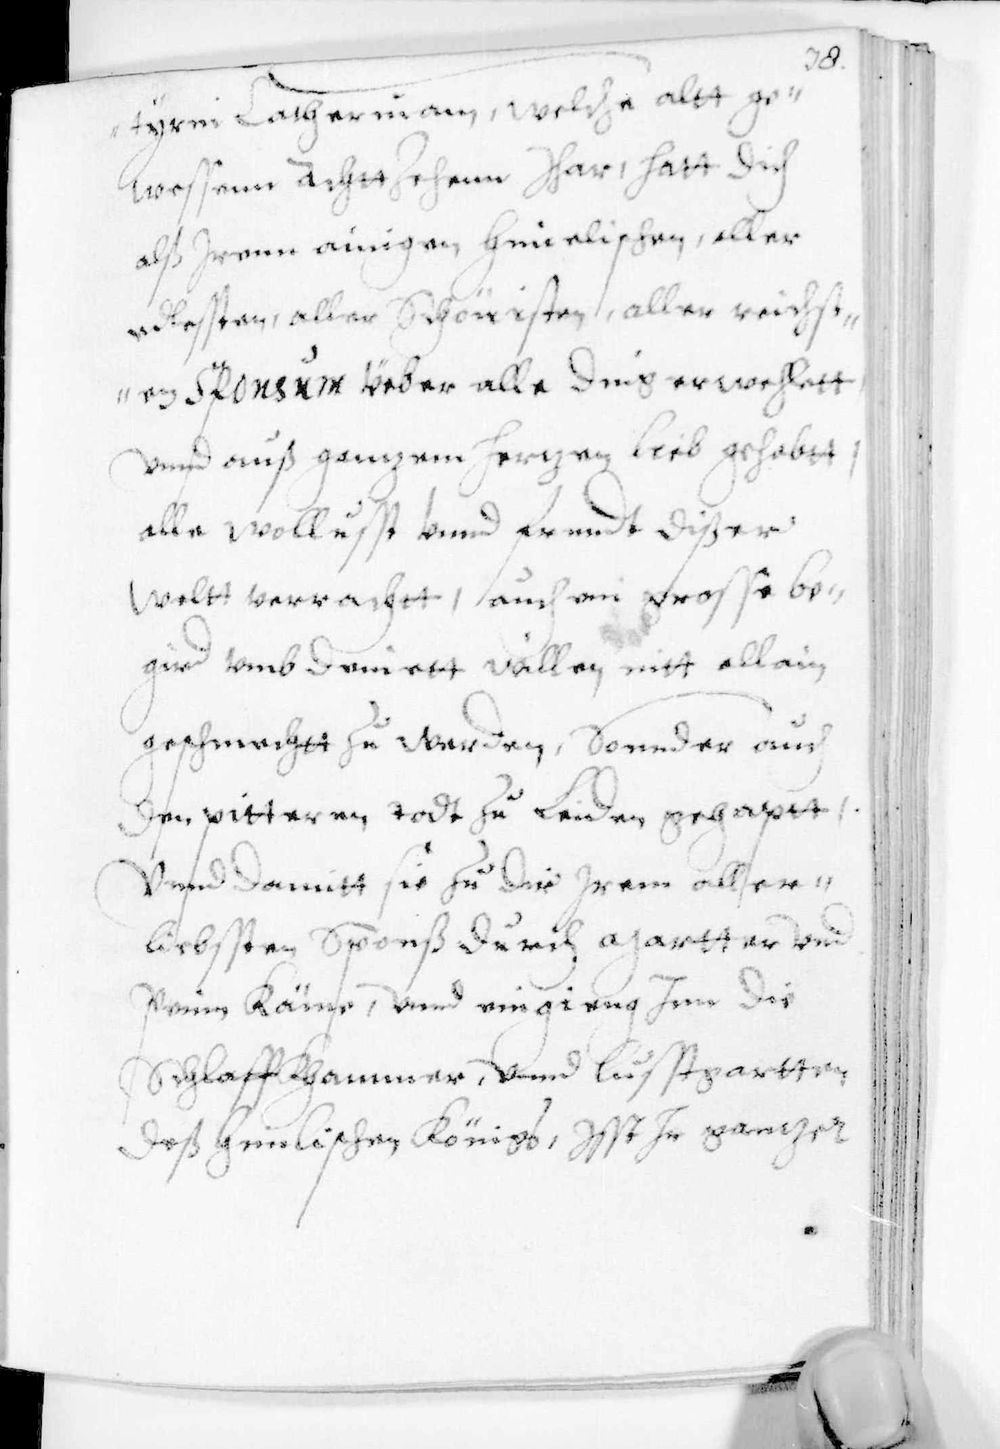 38.
"tyrin Catherinam, welche altt ge"
wessenn Achttzehenn Jhar, hatt dich
alß Jrenn ainigen himelischen, aller
edlessten, aller Schönisten, aller reichst"
"en Sponsum veber alle ding erwehlett,
vnnd auß ganzem herzen lieb gehabtt,
alle wollusst vnnd freudt disser
weltt verrachtt, auch ein grosse be"
gird vmb deinett willen nitt allain
geschmechtt zu werden, Sonnder auch
den pitteren todt zu leiden gehaptt,
Vnnd damitt sie zu dir Jrem aller"
liebssten Sponß durch Martter vnd
Pein käme, vnnd eingieng Jnn die
Schlaffkhammer, vnnd lusstgartten
deß himlischen Königs, Jsst Jr ganzer